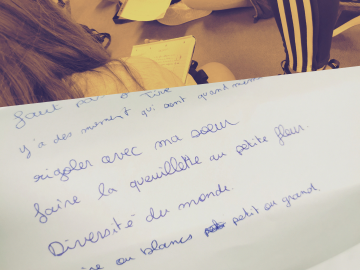 faut pas
y'a des moment qui sont quand meme
rigoler avec ma sœur
faire la queuillette au petite fleur.
Diversité du monde.
ou blancs petit ou grand.